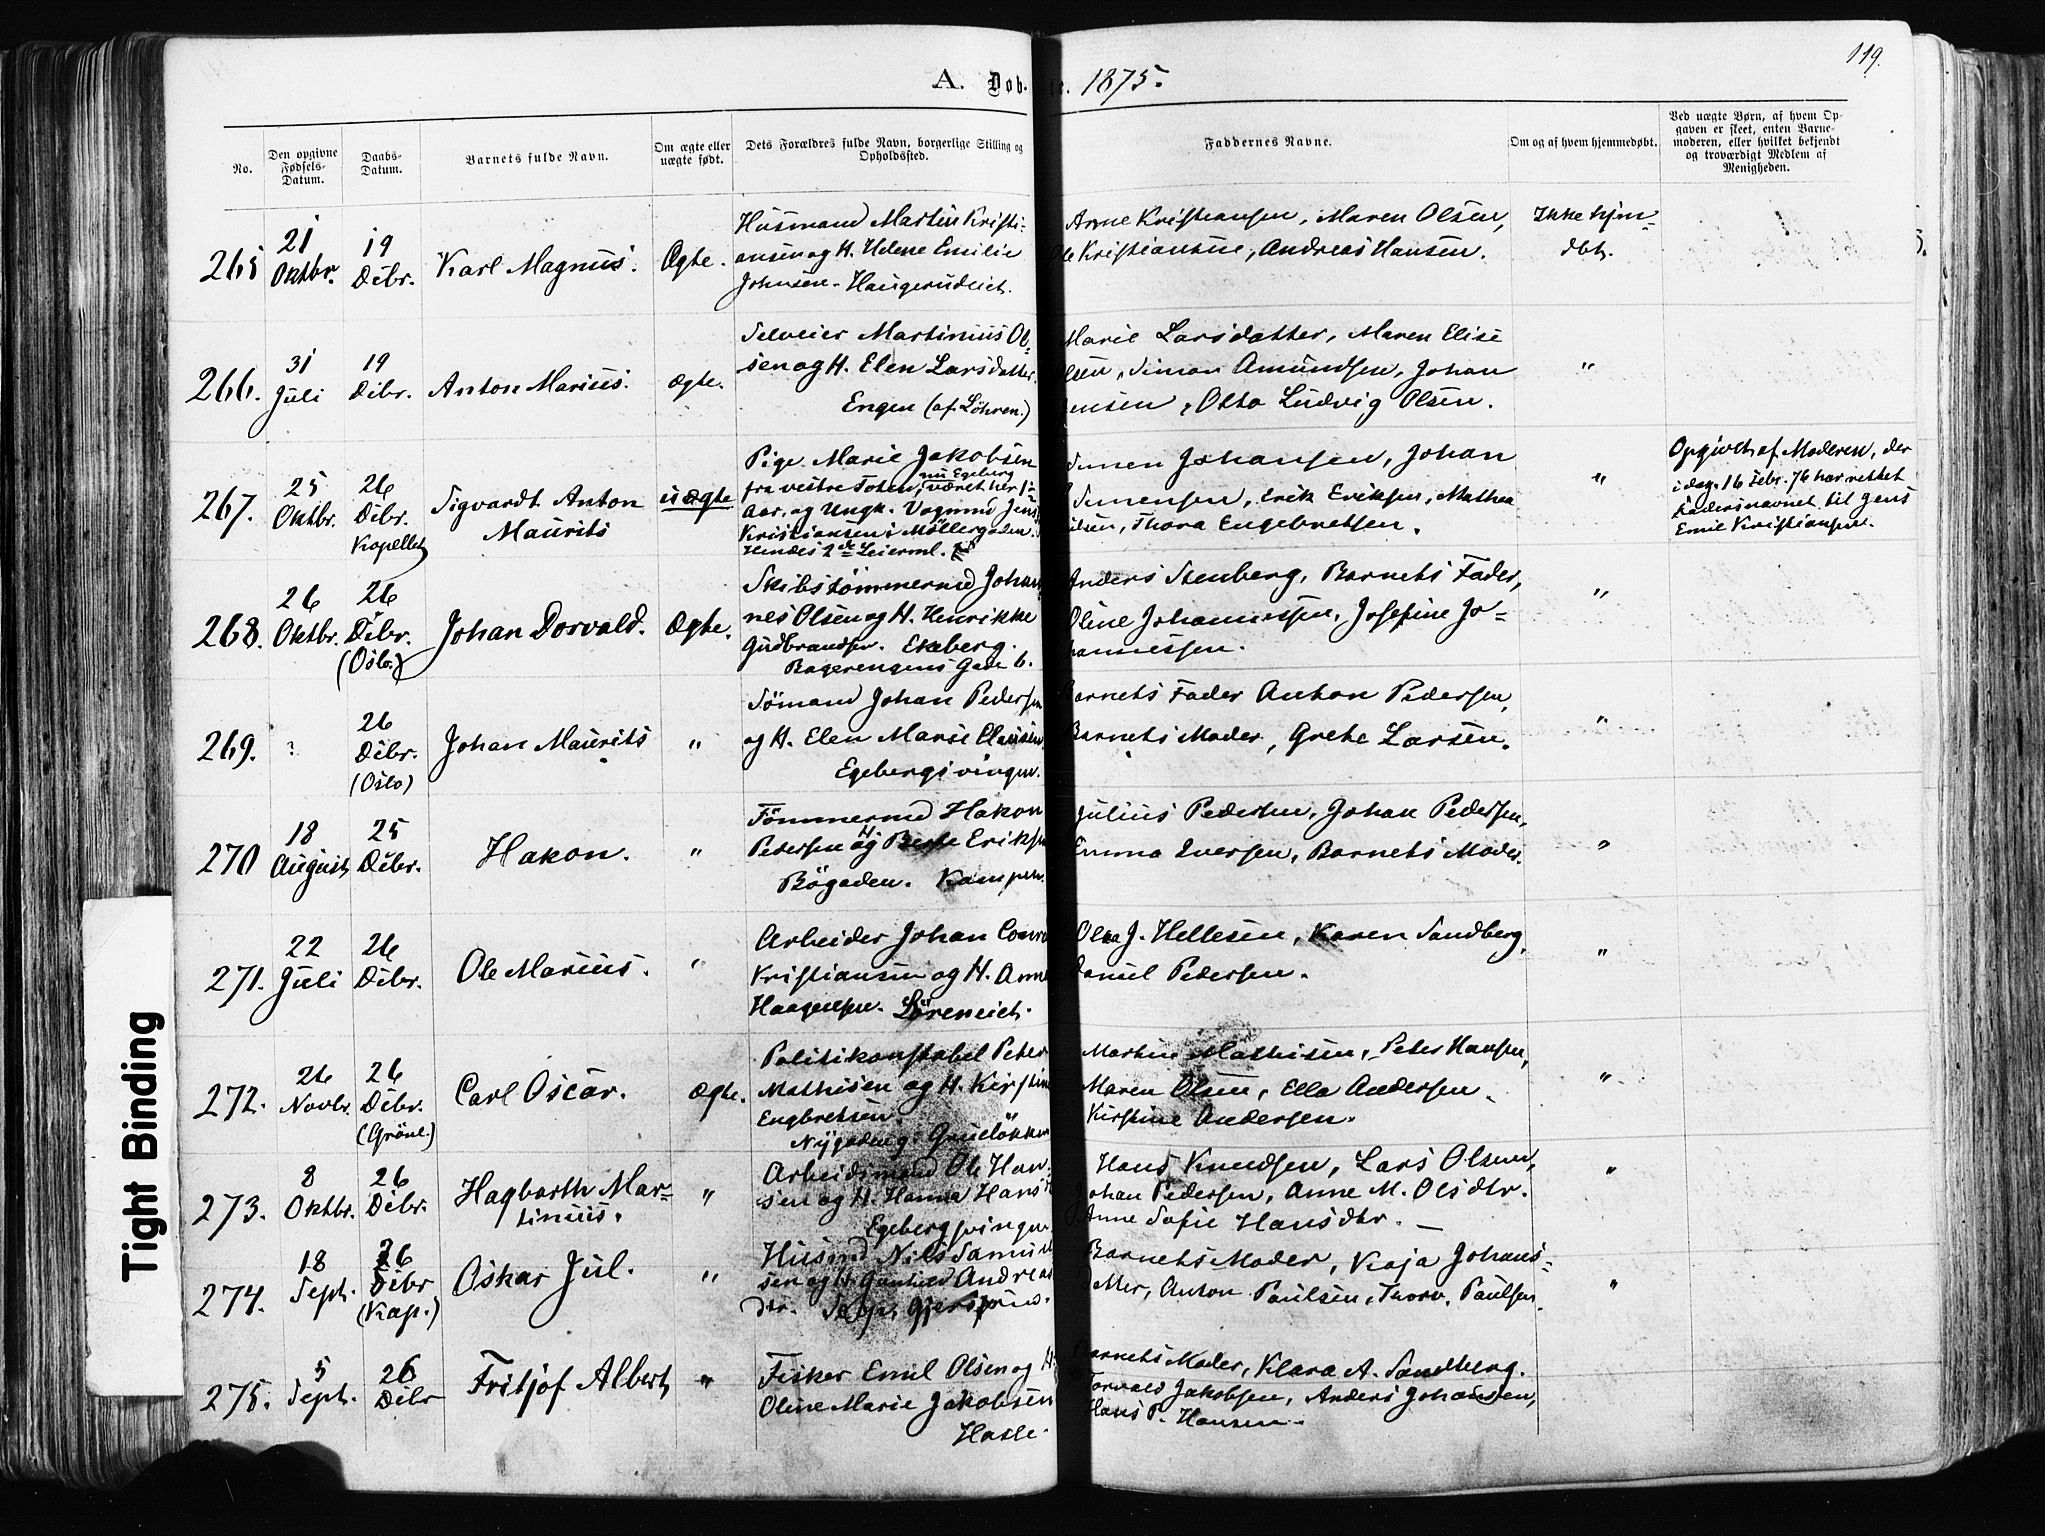 119.
A. Døb- te. 1875.
No.
Den opgivne Fødsels-Datum.
Daabs-Datum.
Barnets fulde Navn.
Om ægte eller uægte født.
Dets Forældres fulde Navn, borgerlige Stilling og Opholdssted.
Faddernes Navne.
Om og af hvem hjemmedøbt.
Ved uægte Børn, af hvem Opgaven er skeet, enten Barnemoderen, eller hvilket bekjendt og troværdigt Medlem af Menigheden.
265 21 Oktbr. 19 Debr. Karl Magnus. Ægte.
Husmand Martin Kristi-
ansen og H. Helene Emilie
Johnsen - Haugerudeiet.
Arne Kristiansen, Maren Olsen,
Ole Kristiansen, Andreas Hansen.
Ikke hjm-
dbt.
266. 31 Juli 19 Debr. Anton Marius. ægte.
Selveier Martinius Ol-
sen og H. Elen Larsdatter.
Engen (af Löhren.)
Marie Larsdatter, Maren Elise
Olsen, Simon Amundsen, Johan
Jensen, Otto Ludvig Olsen.
"
267. 25 Oktbr. 26 Debr. Kapellet Sigvardt Anton
Maurits
uægte
Pige Marie Jakobsen
fra vestre Toten, nu Egeberg været her 1/2
Aar, og Ungk. Vognmd Jens
Kristiansen i Möllergaden.
Hendes 2de Leierml.
Simen Johansen, Johan
Simensen, Erik Eriksen, Mathea
Olsen, Thora Engebretsen.
"
Opgivet af Moderen, der
i dag 16 Febr. 76 har rettet
Fadersnavnet til Jens
Emil Kristiansen.
268. 26 Oktbr. 26 Debr. (Oslo.) Johan Dorvald. Ægte.
Skibstömmermd Johan-
nes Olsen og H. Henrikke
Gudbrandsen. Ekeberg.
Bagerengens Gade 6.
Anders Stenberg, Barnets Fader,
Oline Johannessen, Josefine Jo-
hannessen.
"
269. ? 26 Debr. (Oslo) Johan Maurits "
Sömand Johan Pedersen
og H. Elen Marie Clausen
Egebergsvingen.
Barnets Fader Anton Pedersen,
Barnets Moder, Grete Larsen.
"
270 18 August 25 Debr. Hakon. "
Tömmermd Hakon
Pedersen og H. Berte Eriksen
Bögaden. Kampen.
Julius Pedersen, Johan Pedersen,
Emma Iversen, Barnets Moder.
"
271. 22 Juli 26 Debr. Ole Marius. "
Arbeider Johan Conr
Kristiansen og H. Anne
Haagensen. Löreneiet.
Olea J. Hellesen, Karen Sandberg,
Daniel Pedersen.
"
272. 26 Novbr. 26 Debr. (Grönl.) Carl Oscar. Ægte.
Politikonstabel Peter
Mathisen og H. Kirstine
Engbretsen.
Nygaden 9. Grünlökken
Martin Mathisen, Peter Hansen,
Maren Olsen, Ella Andersen,
Kirstine Andersen.
"
273. 8 Oktbr. 26 Debr. Hagbarth Mar-
tinius.
"
Arbeidsmand Ole Han-
sen og H. Hanna Hans
Egebergsvingen
Hans Knudsen, Lars Olsen,
Johan Pedersen, Anne M. Olsdtr.
Anne Sofie Hansdtr. —
"
274. 18 Sept. 26 Debr (Kap.) Oskar Jul. "
Husmd Nils Samuel
sen og H. Gunhild Andreas
dtr.
Barnets Moder, Kaja Johans-
datter, Anton Paulsen, Thorv. Paulsen.
"
275. 5 Sept. 26 Debr Fritjof Albert "
Fisker Emil Olsen og H.
Oline Marie Jakobsen
Hasle.
Barnets Moder, Klara A. Sandberg.
Torvald Jakobsen, Anders Johansen,
Hans P. Hansen.
Tight Binding